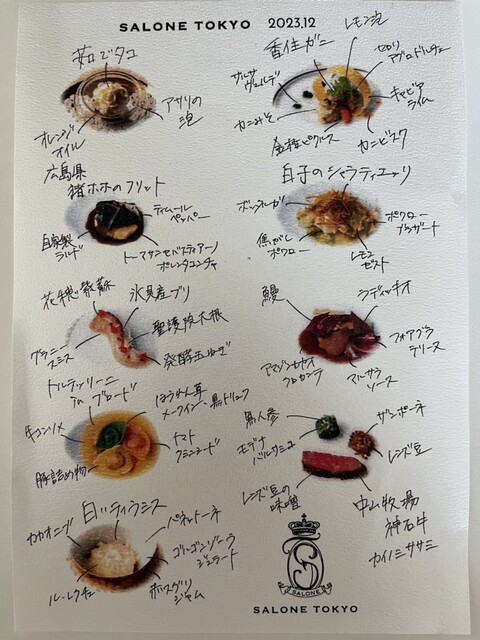 SALONE TOKYO 2023.12
茹でダコ
アサリの
泡
オレンジ
オイル
香住ガニ
レモン泡
サルサ
ヴェルデ
セロリ
アグロドルチェ
キャビア
ライム
カニみそ
金柑ピクルス
カニビスク
広島県
猪ホホのフリット
ティムール
ペッパー
自家製
ラルド
トーマサンセバスティアーノ
ポレンタコンチャ
白子のシャラティエッリ
ボッタルガ
ポワロー
ブラザート
焦がし
ポワロー
レモン
ゼスト
花穂紫蘇
氷見産ブリ
聖護院大根
グラニー
スミス
発酵玉ねぎ
鰻
ラディッキオ
フォアグラ
テリーヌ
アマゾンカカオ
クロカンテ
マルサラ
ソース
トルテッリーニ
in ブロード
ほうれん草
メークイン、黒トリュフ
牛コンソメ
トマト
クミンシード
豚詰め物
黒人参
ザンポーネ
モデナ
バルサミコ
レンズ豆
レンズ豆の
味噌
中山牧場
神石牛
カイノミ ササミ
白いティラミス
カカオニブ
パネットーネ
ゴルゴンゾーラ
ジェラート
ル・レクチェ
ジャム
SALONE
SALONE TOKYO